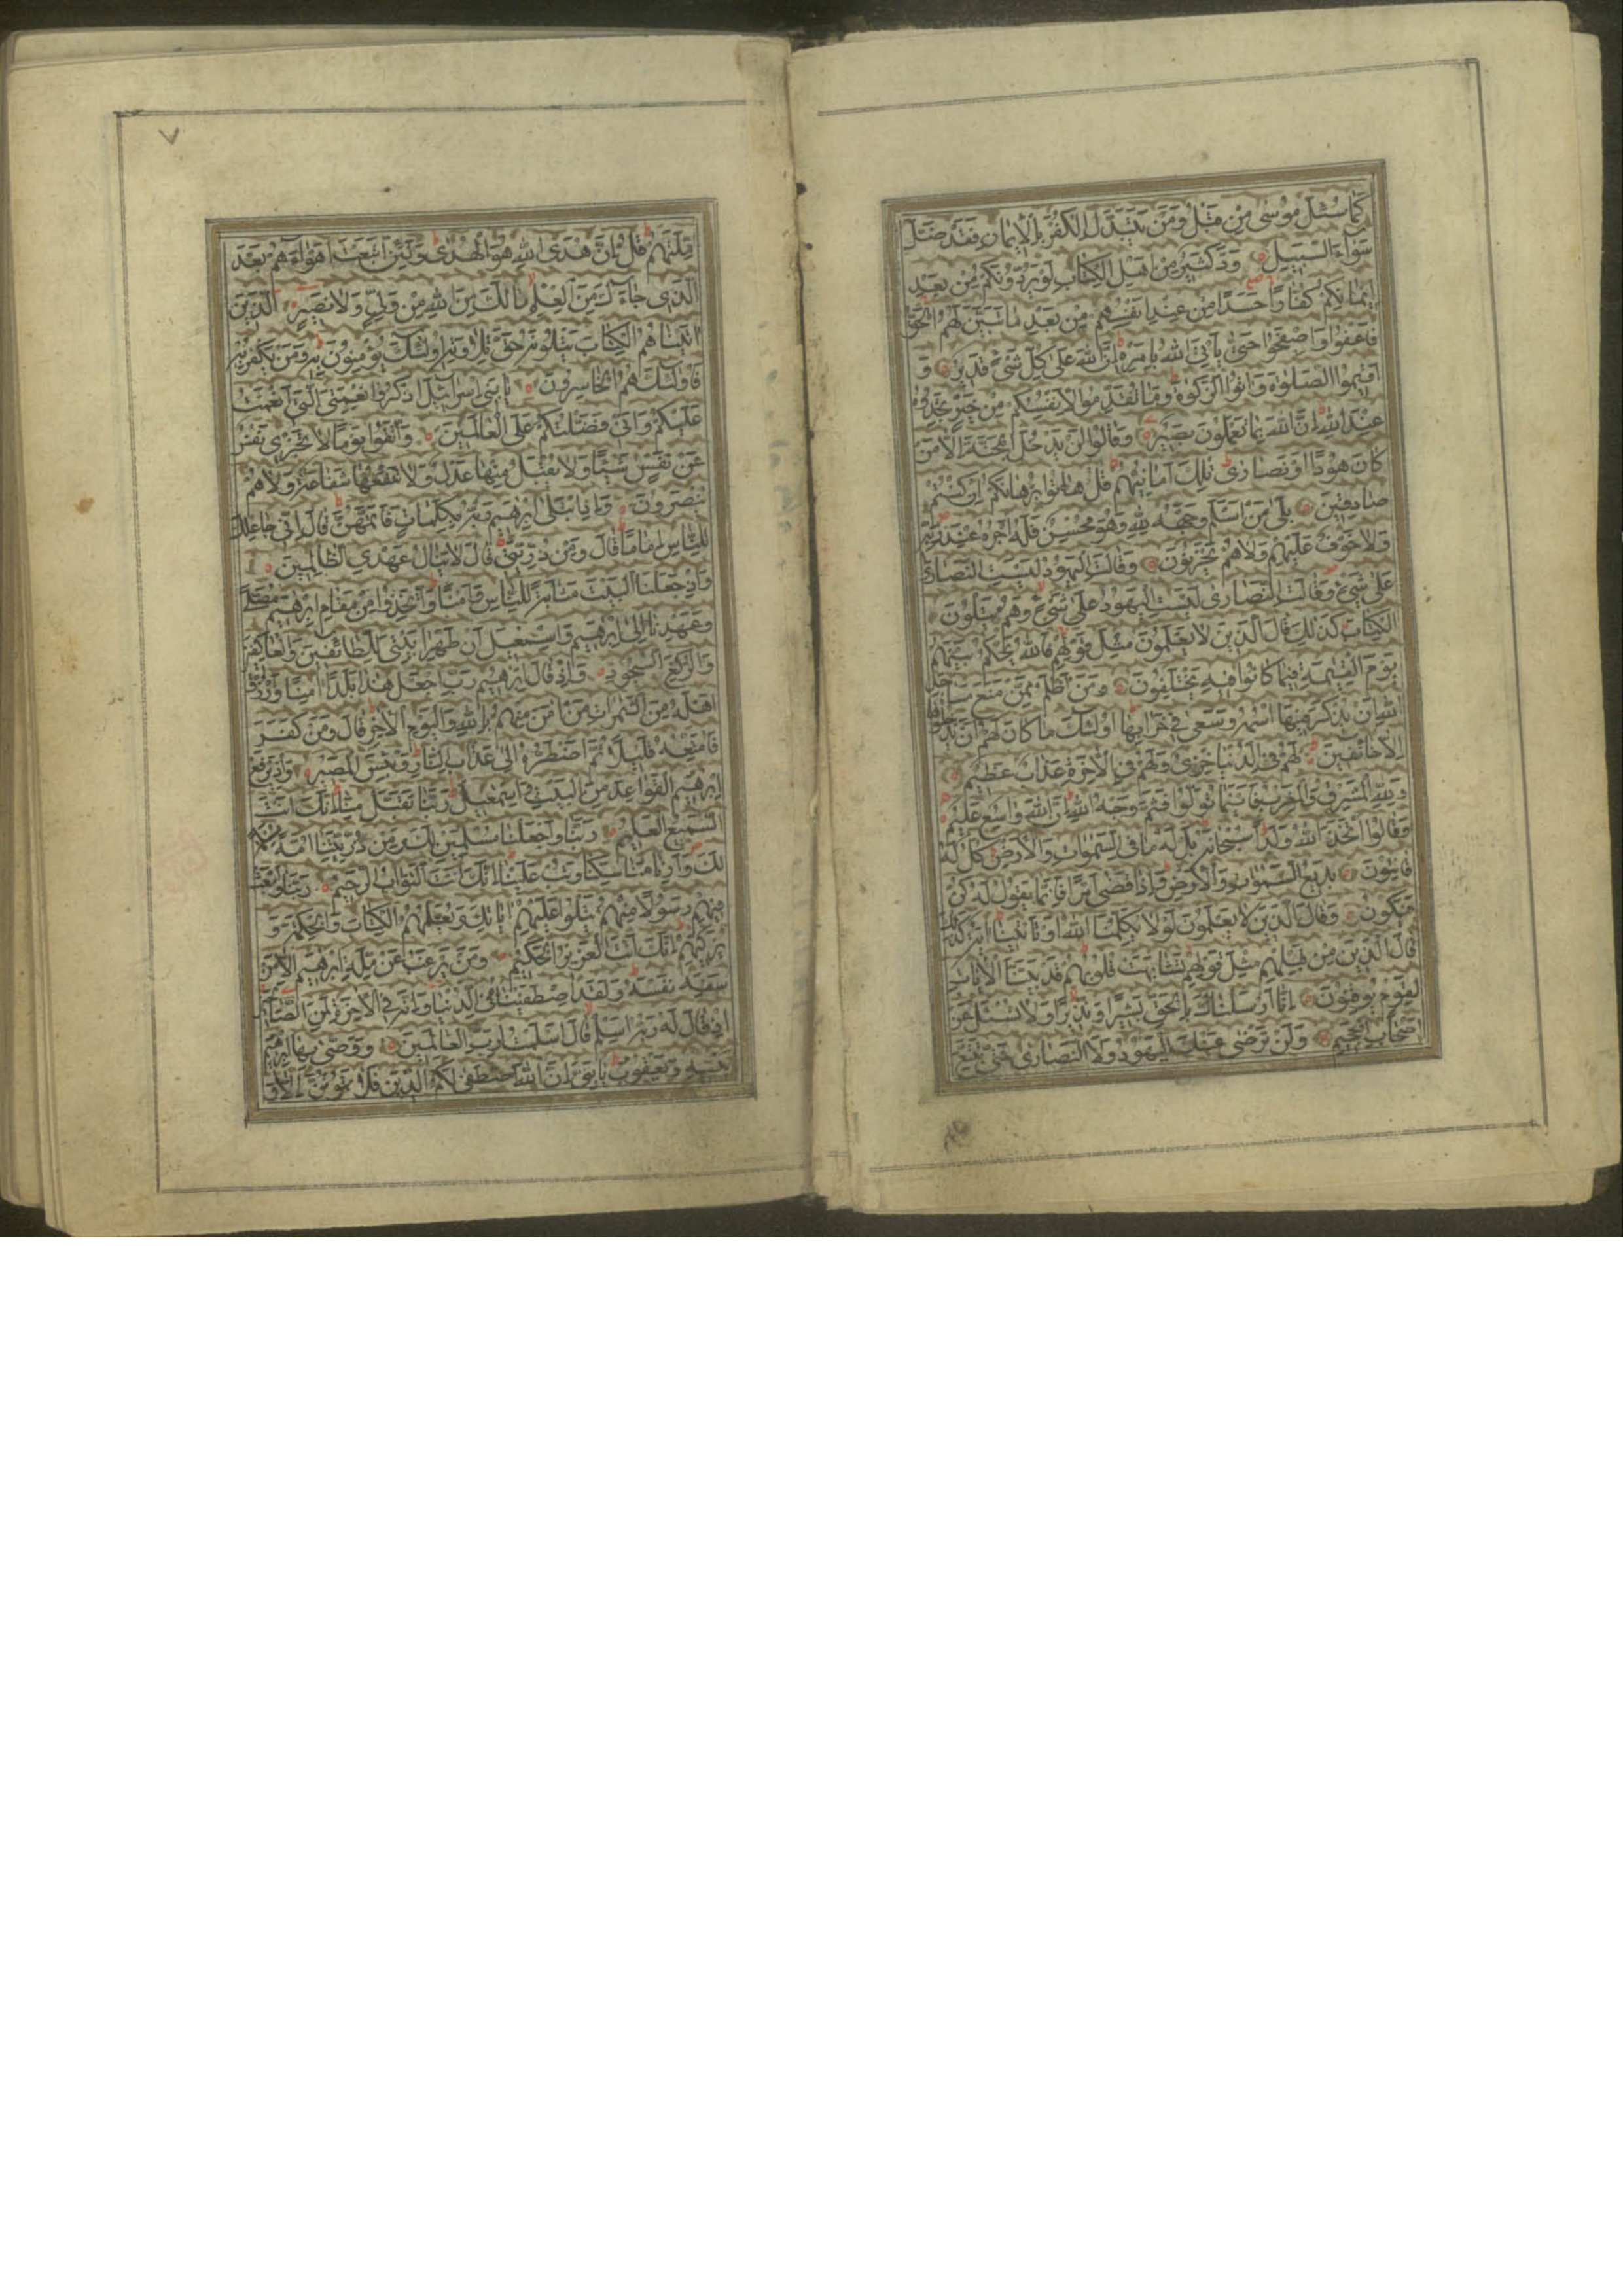 كَمَا سُئِلَ مُوسٰى مِنْ قَبْلُ وَمَنْ يَتَبَدَّلِ الْكُفْرَ بِالْإِيمَانِ فَقَدْ ضَلَّ
سَوَاءَ السَّبِيلِ وَدَّ كَثِيرٌ مِنْ اَهْلِ الْكِتَابِ لَوْ يَرُدُّونَكُمْ مِنْ بَعْدِ
اِيمَانِكُمْ كُفَّارًا حَسَدًا مِنْ عِنْدِ اَنْفُسِهِمْ مِنْ بَعْدِ مَا تَبَيَّنَ لَهُمُ الْحَقُّ
فَاعْفُوا وَاصْفَحُوا حَتّٰى يَأْتِيَ اللهُ بِاَمْرِهِ اِنَّ اللهَ عَلٰى كُلِّ شَىْءٍ قَدِيرٌ وَ
اَقِيمُوا الصَّلٰوةَ وَاٰتُوا الزَّكٰوةَ وَمَا تُقَدِّمُوا لِاَنْفُسِكُمْ مِنْ خَيْرٍ تَجِدُوهُ
عِنْدَ اللهِ اِنَّ اللهَ بِمَا تَعْمَلُونَ بَصِيرٌ وَقَالُوا لَنْ يَدْخُلَ الْجَنَّةَ اِلَّا مَنْ
كَانَ هُودًا اَوْ نَصَارٰى تِلْكَ اَمَانِيُّهُمْ قُلْ هَاتُوا بُرْهَانَكُمْ اِنْ كُنْتُمْ
صَادِقِينَ بَلٰى مَنْ اَسْلَمَ وَجْهَهُ لِلّٰهِ وَهُوَ مُحْسِنٌ فَلَهُ اَجْرُهُ عِنْدَ رَبِّهِ
وَلَا خَوْفٌ عَلَيْهِمْ وَلَا هُمْ يَحْزَنُونَ وَقَالَتِ الْيَهُودُ لَيْسَتِ النَّصَارٰى
عَلٰى شَىْءٍ وَقَالَتِ النَّصَارٰى لَيْسَتِ الْيَهُودُ عَلٰى شَىْءٍ وَهُمْ يَتْلُونَ
الْكِتَابَ كَذٰلِكَ قَالَ الَّذِينَ لَا يَعْلَمُونَ مِثْلَ قَوْلِهِمْ فَاللهُ يَحْكُمُ بَيْنَهُمْ
يَوْمَ الْقِيٰمَةِ فِيمَا كَانُوا فِيهِ يَخْتَلِفُونَ وَمَنْ اَظْلَمُ مِمَّنْ مَنَعَ مَسَاجِدَ
اللهِ اَنْ يُذْكَرَ فِيهَا اسْمُهُ وَسَعٰى فِي خَرَابِهَا اُولٰئِكَ مَا كَانَ لَهُمْ اَنْ يَدْخُلُوهَا
اِلَّا خَائِفِينَ لَهُمْ فِي الدُّنْيَا خِزْىٌ وَلَهُمْ فِي الْاٰخِرَةِ عَذَابٌ عَظِيمٌ
وَلِلّٰهِ الْمَشْرِقُ وَالْمَغْرِبُ فَاَيْنَمَا تُوَلُّوا فَثَمَّ وَجْهُ اللهِ اِنَّ اللهَ وَاسِعٌ عَلِيمٌ
وَقَالُوا اتَّخَذَ اللهُ وَلَدًا سُبْحَانَهُ بَلْ لَهُ مَا فِي السَّمٰوَاتِ وَالْاَرْضِ كُلٌّ لَهُ
قَانِتُونَ بَدِيعُ السَّمٰوَاتِ وَالْاَرْضِ وَاِذَا قَضٰى اَمْرًا فَاِنَّمَا يَقُولُ لَهُ كُنْ
فَيَكُونُ وَقَالَ الَّذِينَ لَا يَعْلَمُونَ لَوْلَا يُكَلِّمُنَا اللهُ اَوْ تَأْتِينَا اٰيَةٌ كَذٰلِكَ
قَالَ الَّذِينَ مِنْ قَبْلِهِمْ مِثْلَ قَوْلِهِمْ تَشَابَهَتْ قُلُوبُهُمْ قَدْ بَيَّنَّا الْاٰيَاتِ
لِقَوْمٍ يُوقِنُونَ اِنَّا اَرْسَلْنَاكَ بِالْحَقِّ بَشِيرًا وَنَذِيرًا وَلَا تُسْئَلُ عَنْ
اَصْحَابِ الْجَحِيمِ وَلَنْ تَرْضٰى عَنْكَ الْيَهُودُ وَلَا النَّصَارٰى حَتّٰى تَتَّبِعَ
٧
مِلَّتَهُمْ قُلْ اِنَّ هُدَى اللهِ هُوَ الْهُدٰى وَلَئِنِ اتَّبَعْتَ اَهْوَاءَهُمْ بَعْدَ
الَّذِي جَاءَكَ مِنَ الْعِلْمِ مَا لَكَ مِنَ اللهِ مِنْ وَلِىٍّ وَلَا نَصِيرٍ الَّذِينَ
اٰتَيْنَاهُمُ الْكِتَابَ يَتْلُونَهُ حَقَّ تِلَاوَتِهِ اُولٰئِكَ يُؤْمِنُونَ بِهِ وَمَنْ يَكْفُرْ بِهِ
فَاُولٰئِكَ هُمُ الْخَاسِرُونَ يَا بَنِي اِسْرَائِيلَ اذْكُرُوا نِعْمَتِيَ الَّتِي اَنْعَمْتُ
عَلَيْكُمْ وَاَنِّي فَضَّلْتُكُمْ عَلَى الْعَالَمِينَ وَاتَّقُوا يَوْمًا لَا تَجْزِي نَفْسٌ
عَنْ نَفْسٍ شَيْئًا وَلَا يُقْبَلُ مِنْهَا عَدْلٌ وَلَا تَنْفَعُهَا شَفَاعَةٌ وَلَا هُمْ
يُنْصَرُونَ وَاِذِ ابْتَلٰى اِبْرٰهِيمَ رَبُّهُ بِكَلِمَاتٍ فَاَتَمَّهُنَّ قَالَ اِنِّي جَاعِلُكَ
لِلنَّاسِ اِمَامًا قَالَ وَمِنْ ذُرِّيَّتِي قَالَ لَا يَنَالُ عَهْدِي الظَّالِمِينَ
وَاِذْ جَعَلْنَا الْبَيْتَ مَثَابَةً لِلنَّاسِ وَاَمْنًا وَاتَّخِذُوا مِنْ مَقَامِ اِبْرٰهِيمَ مُصَلًّى
وَعَهِدْنَا اِلٰى اِبْرٰهِيمَ وَاِسْمٰعِيلَ اَنْ طَهِّرَا بَيْتِيَ لِلطَّائِفِينَ وَالْعَاكِفِينَ
وَالرُّكَّعِ السُّجُودِ وَاِذْ قَالَ اِبْرٰهِيمُ رَبِّ اجْعَلْ هٰذَا بَلَدًا اٰمِنًا وَارْزُقْ
اَهْلَهُ مِنَ الثَّمَرَاتِ مَنْ اٰمَنَ مِنْهُمْ بِاللهِ وَالْيَوْمِ الْاٰخِرِ قَالَ وَمَنْ كَفَرَ
فَاُمَتِّعُهُ قَلِيلًا ثُمَّ اَضْطَرُّهُ اِلٰى عَذَابِ النَّارِ وَبِئْسَ الْمَصِيرُ وَاِذْ يَرْفَعُ
اِبْرٰهِيمُ الْقَوَاعِدَ مِنَ الْبَيْتِ وَاِسْمٰعِيلُ رَبَّنَا تَقَبَّلْ مِنَّا اِنَّكَ اَنْتَ
السَّمِيعُ الْعَلِيمُ رَبَّنَا وَاجْعَلْنَا مُسْلِمَيْنِ لَكَ وَمِنْ ذُرِّيَّتِنَا اُمَّةً مُسْلِمَةً
لَكَ وَاَرِنَا مَنَاسِكَنَا وَتُبْ عَلَيْنَا اِنَّكَ اَنْتَ التَّوَّابُ الرَّحِيمُ رَبَّنَا وَابْعَثْ
فِيهِمْ رَسُولًا مِنْهُمْ يَتْلُوا عَلَيْهِمْ اٰيَاتِكَ وَيُعَلِّمُهُمُ الْكِتَابَ وَالْحِكْمَةَ وَ
يُزَكِّيهِمْ اِنَّكَ اَنْتَ الْعَزِيزُ الْحَكِيمُ وَمَنْ يَرْغَبُ عَنْ مِلَّةِ اِبْرٰهِيمَ اِلَّا مَنْ
سَفِهَ نَفْسَهُ وَلَقَدِ اصْطَفَيْنَاهُ فِي الدُّنْيَا وَاِنَّهُ فِي الْاٰخِرَةِ لَمِنَ الصَّالِحِينَ
اِذْ قَالَ لَهُ رَبُّهُ اَسْلِمْ قَالَ اَسْلَمْتُ لِرَبِّ الْعَالَمِينَ وَوَصّٰى بِهَا اِبْرٰهِيمُ
بَنِيهِ وَيَعْقُوبُ يَا بَنِيَّ اِنَّ اللهَ اصْطَفٰى لَكُمُ الدِّينَ فَلَا تَمُوتُنَّ اِلَّا وَ